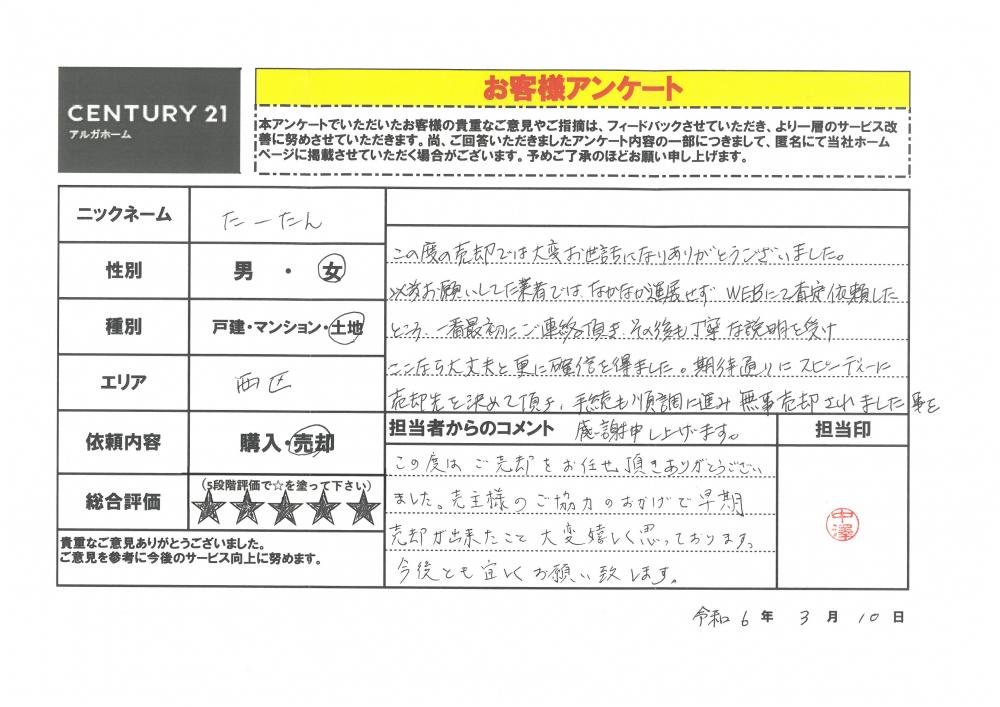 CENTURY 21
アルガホーム
お客様アンケート
本アンケートでいただいたお客様の貴重なご意見やご指摘は、フィードバックさせていただき、より一層のサービス改
善に努めさせていただきます。尚、ご回答いただきましたアンケート内容の一部につきまして、匿名にて当社ホーム
ページに掲載させていただく場合がございます。予めご了承のほどお願い申し上げます。
ニックネーム
たーたん
性別
男 ・ 女
種別
戸建・マンション・土地
エリア
西区
依頼内容
購入・売却
総合評価
(5段階評価で☆を塗って下さい)
★★★★★
貴重なご意見ありがとうございました。
ご意見を参考に今後のサービス向上に努めます。
この度の売却では大変お世話になりありがとうございました。
以前お願いしてた業者では、なかなか進展せず WEBにて査定依頼した
ところ、一番最初にご連絡頂き、その後も丁寧な説明を受け
ここなら大丈夫と更に確信を得ました。期待通りにスピーディーに
売却先を決めて頂き、手続も順調に進み 無事売却されました事を
感謝申し上げます。
担当者からのコメント
担当印
この度はご売却をお任せ頂きありがとうござい
ました。売主様のご協力のおかげで早期
売却が出来たこと大変嬉しく思っております。
今後とも宜しくお願い致します。
中澤
令和 6 年 3 月 10 日